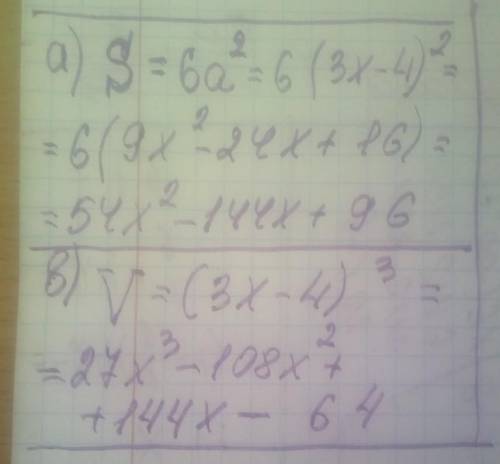 а) S = 6a² = 6(3x-4)² =
= 6(9x² - 24x + 16) =
= 54x² - 144x + 96
в) V = (3x - 4)³ =
= 27x³ - 108x² +
+ 144x - 64